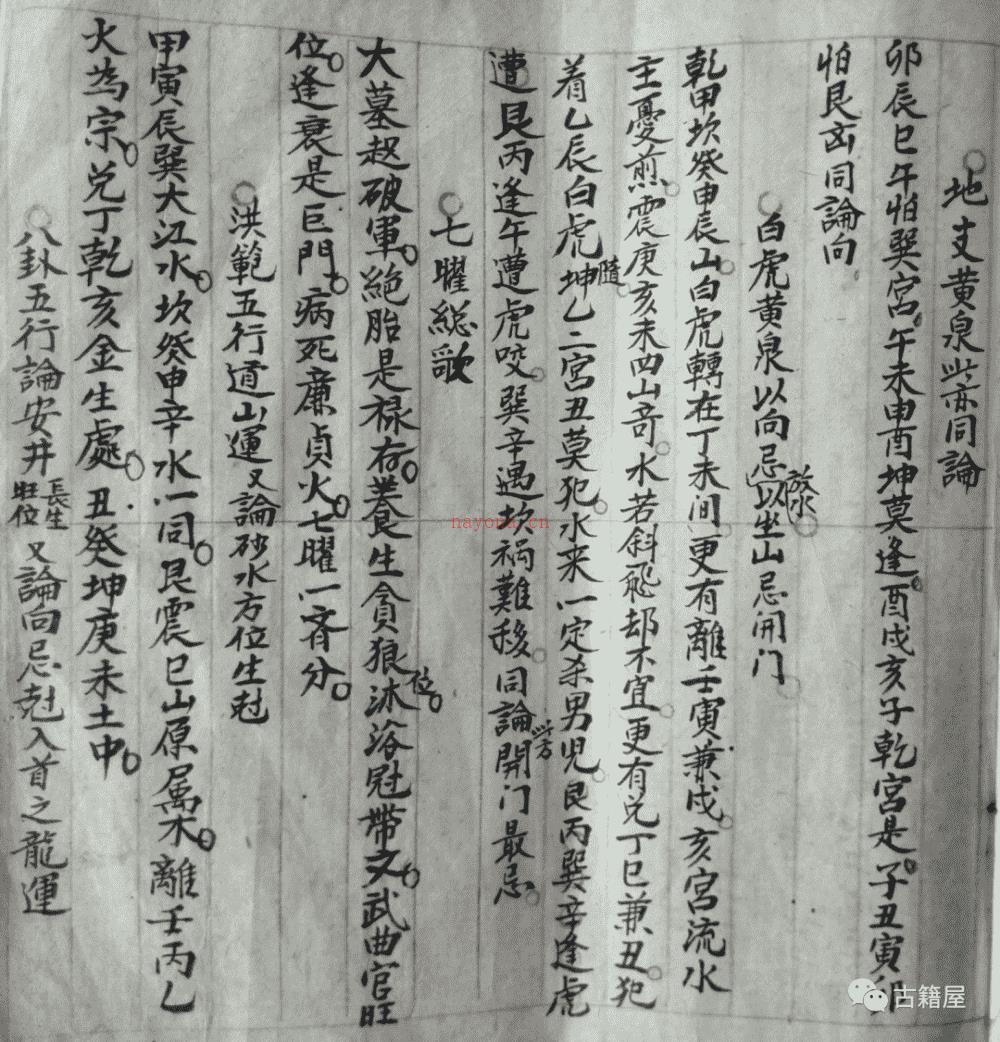 地支黄泉此亦同論
卯辰巳午怕巽宮午未申酉坤莫逢酉戌亥子乾宮是子丑寅卯
怕艮凶同論向
白虎黄泉以向忌放水以坐山忌開门
乾甲坎癸申辰山白虎轉在丁未间更有離壬寅兼戌亥宮流水
主憂煎震庚亥未四山奇水若斜飛却不宜更有兌丁巳兼丑犯
着乙辰白虎隨坤乙二宮丑莫犯水来一定杀男児艮丙巽辛逢虎
遭艮丙逢午遭虎咬巽辛遇坎祸難移同論此方開门最忌
七曜総歌
大墓起破軍絕胎是禄存養生貪狼位沐浴冠帶文武曲官旺
位逢衰是巨門病死廉貞火七曜一齊分
洪範五行道山運又論砂水方位生尅
甲寅辰巽大江水坎癸申辛水一同艮震巳山原属木離壬丙乙
火為宗兌丁乾亥金生處丑癸坤庚未土中
八卦五行論安井長生旺位又論向忌尅入首之龍運
nayona.cn
古籍屋